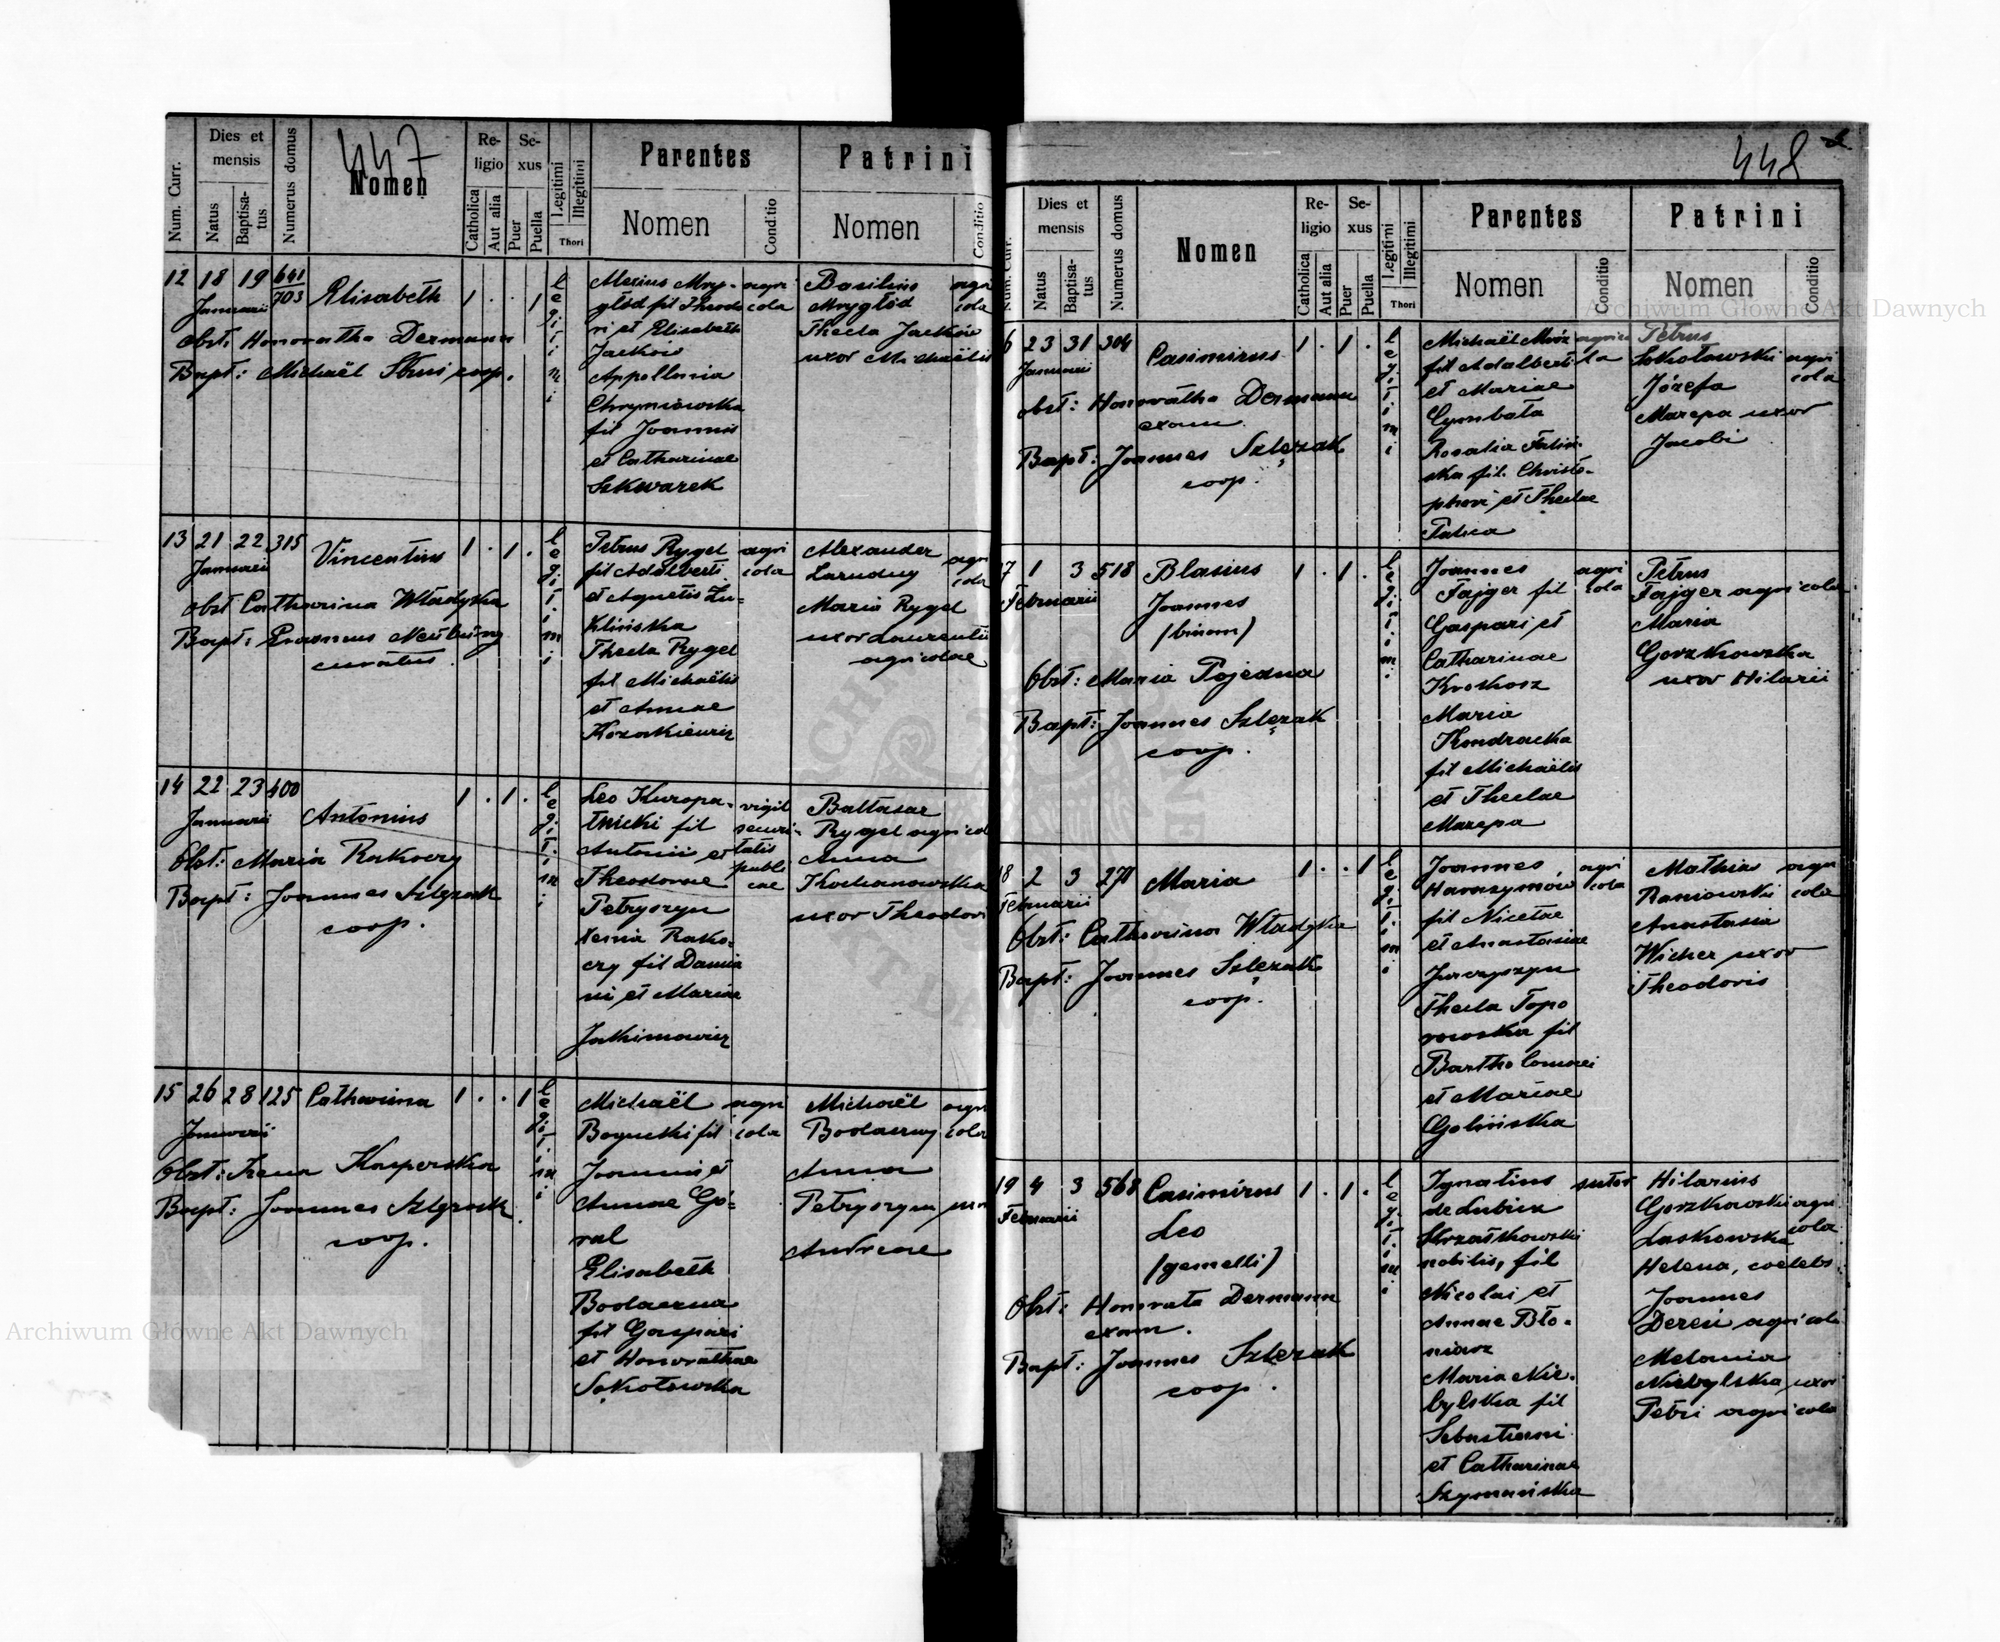 447
Num. Curr.
Dies et mensis
Natus
Baptisatus
Numerus domus
Nomen
Religio
Catholica
Aut alia
Sexus
Puer
Puella
Legitimi
Illegitimi
Thori
Parentes
Nomen
Conditio
Patrini
Nomen
Conditio
12 18 19 641/703 Elisabeth 1 . . 1
Januarii
Obst: Honoratha Dermann
Bapt: Michaël coop.
legitimi
fil Theodo
ri et Elisabeth
Jacków
Appollonia
Chryniowska
fil Joannis
et Catharinae
Szkwarek
agri
cola
Basilius
Mrygłod
Thecla Jacków
uxor Michaëlis
agri
cola
13 21 22 315 Vincentius 1 . 1 .
Januarii
Obst Catharina Władyka
Bapt: Erasmus Neuburg
curatus.
legitimi
Petrus Rygel
fil Adalberti
et Agnetis Zu-
klińska
Thecla Rygel
fil Michaëlis
et Annae
Kozakiewicz
agri
cola
Alexander
Zarudny
Maria Rygel
uxor Laurentii
agricolae
agri
cola
14 22 23 400 Antonius 1 . 1 .
Januarii
Obst: Maria Rakoczy
Bapt: Joannes Szlęzak
coop.
legitimi
Leo Kuropa-
tnicki fil
Antonii et
Theodorae
Petryszyn
Xenia Rako-
czy fil Damia
ni et Mariae
Jakimowicz
vigil
securi-
tatis
publi
cae
Baltasar
Rygel agricol
Anna
Kochanowska
uxor Theodori
15 26 28 125 Catharina 1 . . 1
Januarii
Obst: Xena Kasperska
Bapt: Joannes Szlęzak
coop.
legitimi
Michaël
Bogucki fil
Joannis et
Annae Gó-
ral
Elisabeth
Bodaczna
fil Gaspari
et Honorathae
Sokołowska
agri
cola
Michaël
Bodaczny
Anna
Petryszyn uxor
Andreae
agri
cola
448
Num. Curr.
Dies et mensis
Natus
Baptisatus
Numerus domus
Nomen
Religio
Catholica
Aut alia
Sexus
Puer
Puella
Legitimi
Illegitimi
Thori
Parentes
Nomen
Conditio
Patrini
Nomen
Conditio
6 23 31 304 Casimirus 1 . 1 .
Januarii
obst: Honoratha Dermann
exam.
Bapt: Joannes Szlęzak
coop.
legitimi
Michaël Mróz
fil Adalberti
et Mariae
Cymbała
Rosalia
ska fil. Christo-
phori et Theclae
agrico
la
Petrus
Sokołowski
Józefa
Mazepa uxor
Jacobi
agri
cola
7 1 3 518 Blasius 1 . 1 .
Februarii
Joannes
(binom)
Obst: Maria Pojedna
Bapt: Joannes Szlęzak
coop.
legitimi
Joannes
Fajger fil
Gaspari et
Catharinae
Krokosz
Maria
Kondracka
fil Michaëlis
et Theclae
Mazepa
agri
cola
Petrus
Fajger agricola
Maria
Gorzkowska
uxor Hilarii
8 2 3 270 Maria 1 . . 1
Februarii
Obst: Catharina Władyka
Bapt: Joannes Szlęzak
coop.
legitimi
Joannes
Harasymów
fil Nicetae
et Anastasiae
Jurczyszyn
Thecla Topo
rowska fil
Bartholomaei
et Mariae
Golińska
agri
cola
Mathias
Raniowski
Anastasia
Wicher uxor
Theodoris
agri
cola
19 4 3 568 Casimirus 1 . 1 .
Februarii
Leo
(gemelli)
Obst: Honorata Dermann
exam.
Bapt: Joannes Szlęzak
coop.
legitimi
Ignatius
de Lubicz
Strzałkowski
nobilis, fil
Nicolai et
Annae Bło-
niarz
Maria Nie-
bylska fil
Sebastiani
et Catharinae
Szymańska
sutor
Hilarius
Gorzkowski agri
cola
Laskowska
Helena, coelebs
Joannes
Dereń agricola
Melania
Niebylska uxor
Petri agricola
Archiwum Główne Akt Dawnych
Archiwum Główne Akt Dawnych